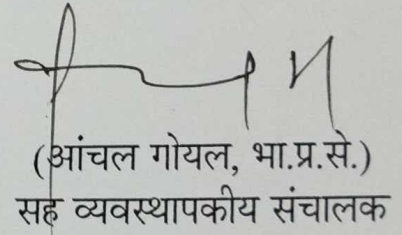 (आंचल गोयल, भा.प्र.से.)
सह व्यवस्थापकीय संचालक